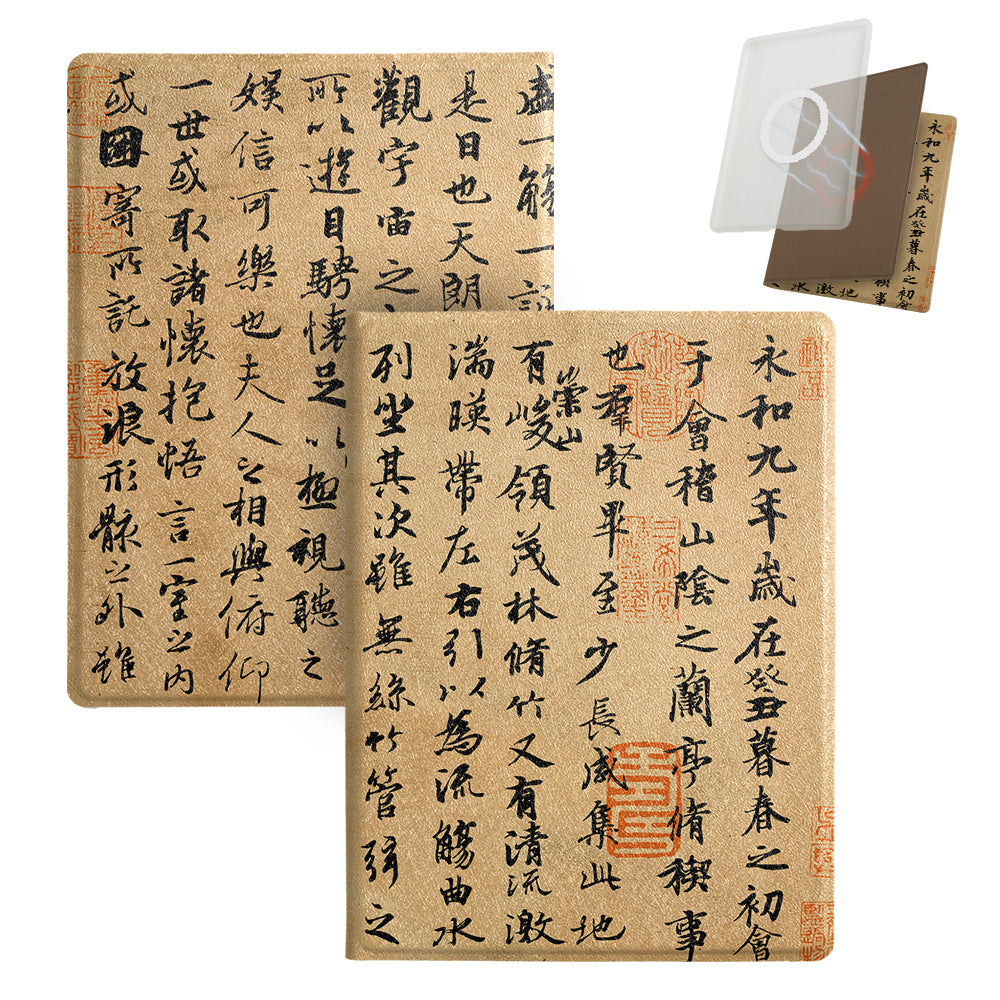 永和九年歲在癸丑暮春之初會
于會稽山陰之蘭亭脩禊事
也羣賢畢至少長咸集此地
有崇山峻領茂林脩竹又有清流激
湍暎帶左右引以為流觴曲水
列坐其次雖無絲竹管弦之
盛一觴一詠
是日也天朗
觀宇宙之
所以遊目騁懷足以極視聽之
娛信可樂也夫人之相與俯仰
一世或取諸懷抱悟言一室之內
或因寄所託放浪形骸之外雖
永和九年歲在癸丑暮春之初會
禊事
地
激
水